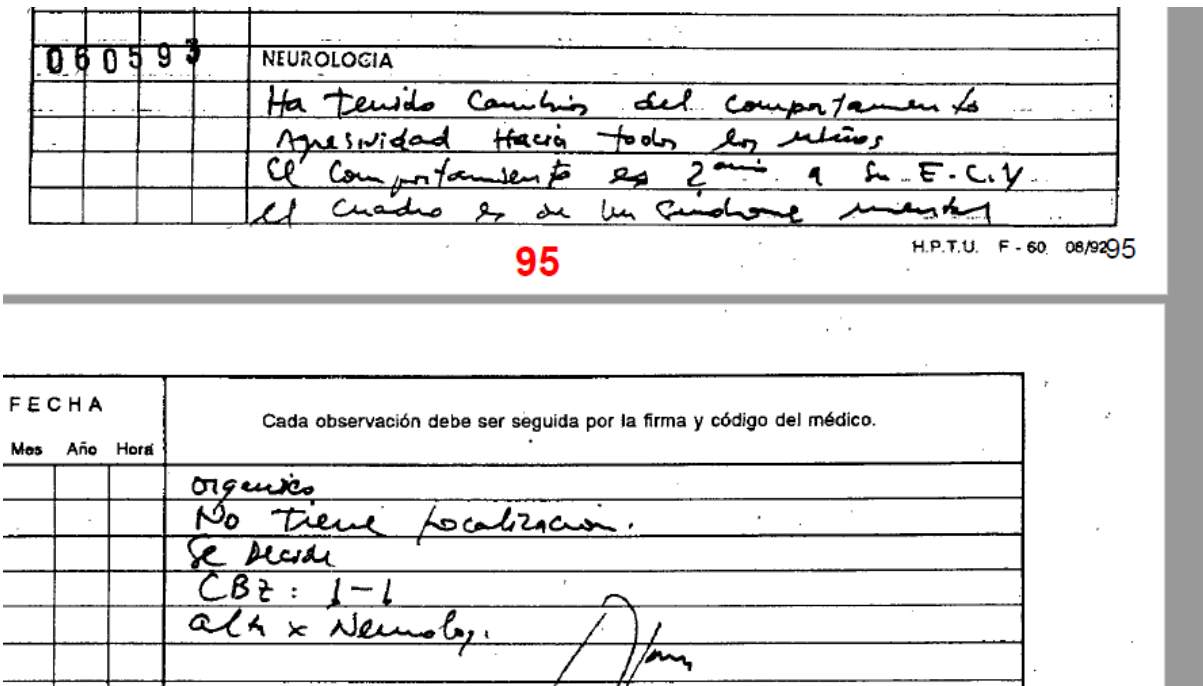 060593 NEUROLOGIA
Ha tenido Cambios del comportamiento
Agresividad Hacia todos los niños
El Comportamiento es 2ario a su E.C.V
el cuadro es de un Sindrome mental
95
H.P.T.U. F - 60 08/92 95
FECHA
Cada observación debe ser seguida por la firma y código del médico.
Mes Año Hora
organico
No Tiene focalizacion.
Se Decide
CBZ: 1-1
alta x Neurolog.